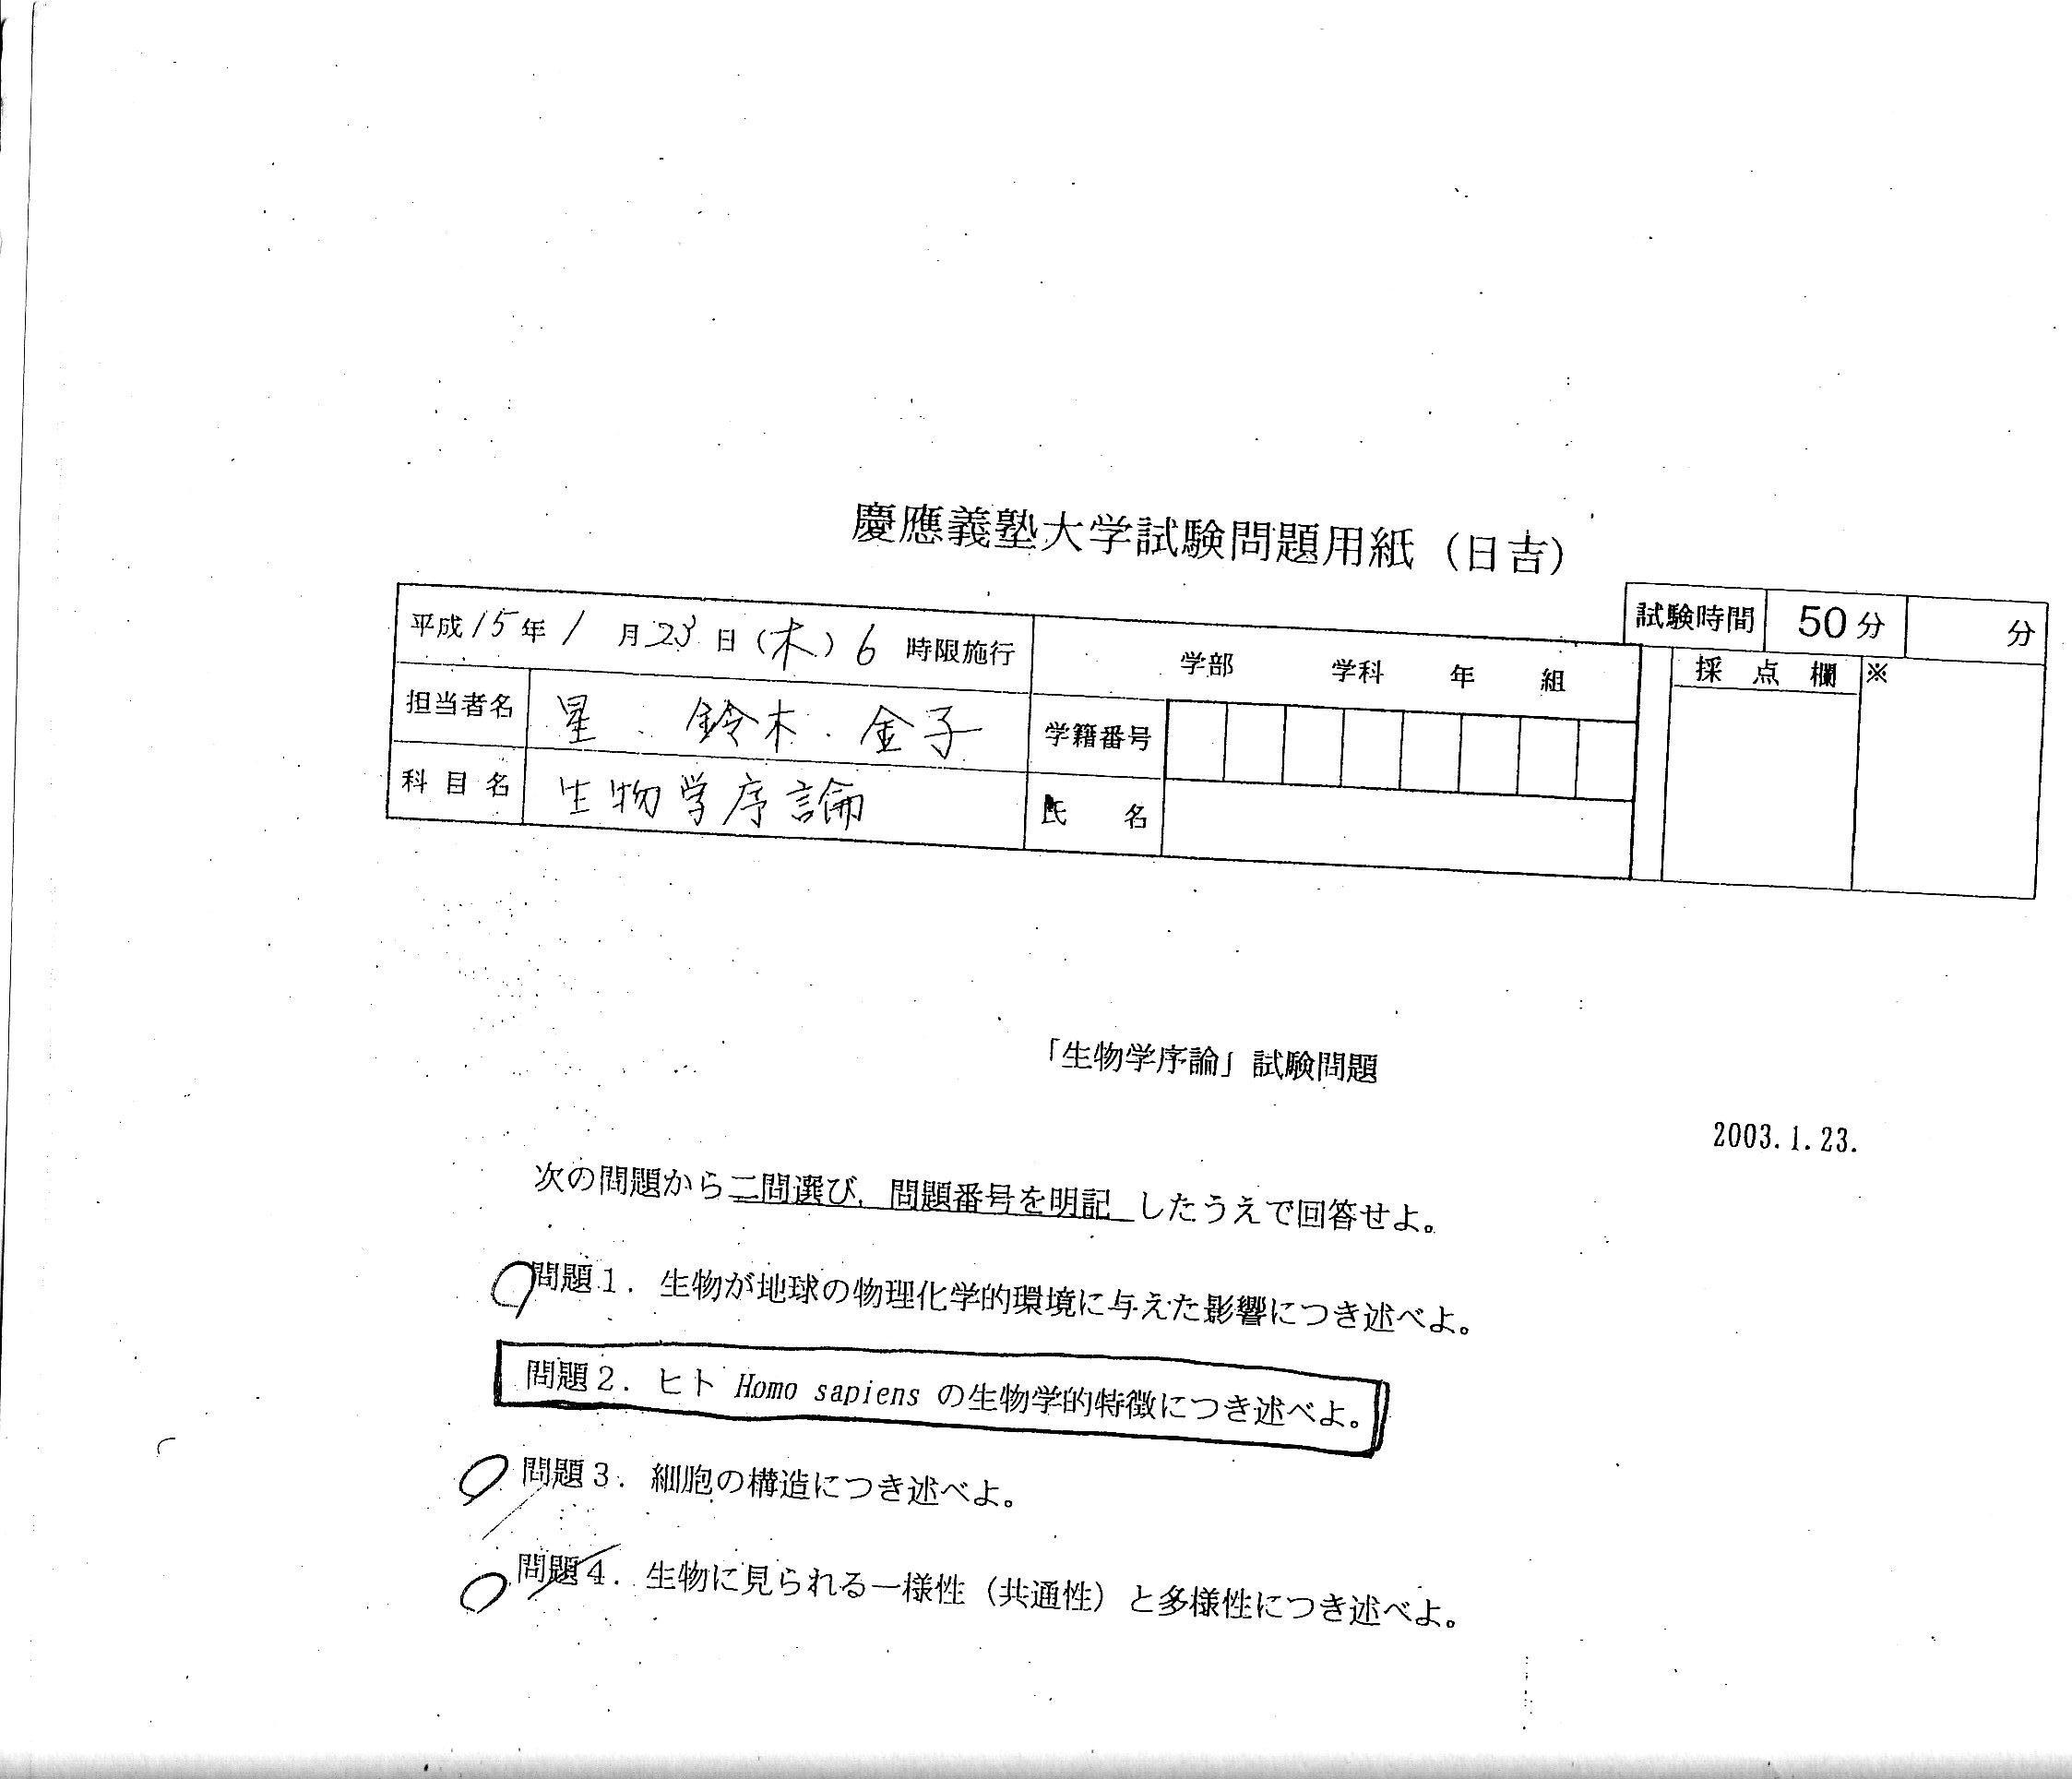 慶應義塾大学試験問題用紙（日吉）
試験時間 50分 分
平成15年1月23日（木）6時限施行
学部 学科 年 組
採点欄 ※
担当者名 星．鈴木．金子
学籍番号
科目名 生物学序論
氏名
「生物学序論」試験問題
2003.1.23.
次の問題から二問選び，問題番号を明記したうえで回答せよ。
問題1．生物が地球の物理化学的環境に与えた影響につき述べよ。
問題2．ヒト Homo sapiens の生物学的特徴につき述べよ。
問題3．細胞の構造につき述べよ。
問題4．生物に見られる一様性（共通性）と多様性につき述べよ。